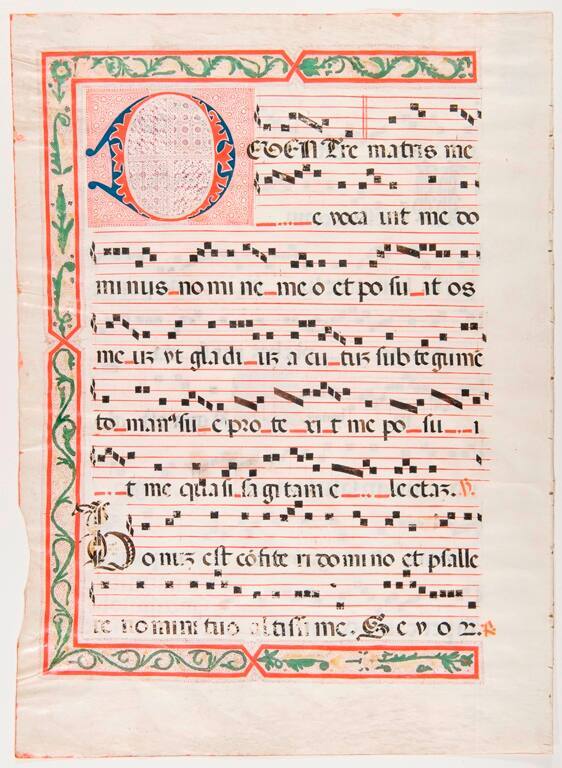 DE VEN Tre matris me
e voca uit me do
minus no mi ne meo et po su it os
me uz vt gladi uz a cu tuz sub tegume
to man⁹ su e pro te xi t me po su i
t me quasi sagitam e lectaz. ℟.
Bonuz est cōfite ri domino et psalle
re nomini tuo altissime. S e v o ꝛ. ℟